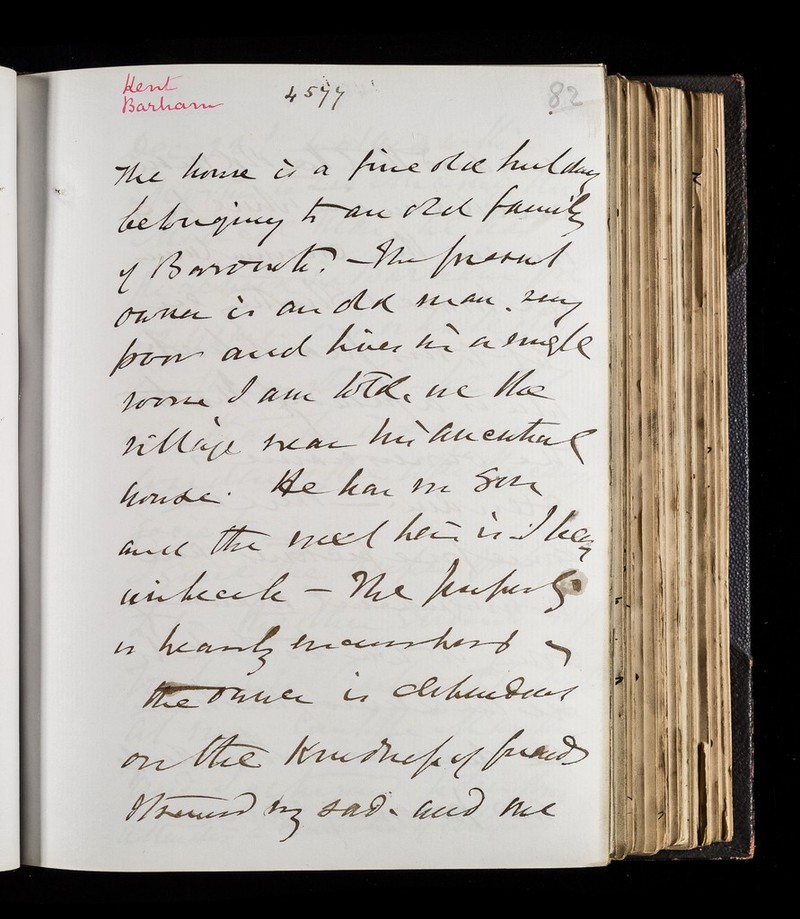 Kent
Barham
4577
82
The house is a fine old building
belonging to an old family
of Baronets. - The present
owner is an old man. very
poor and lives in a single
room I am told, in the
village near his ancentral
house. He has no Son
and the next heir is I hear
imbecile - The property
is heavily encumbered &
the owner is dependent
on the Kindness of friends
very sad - and one